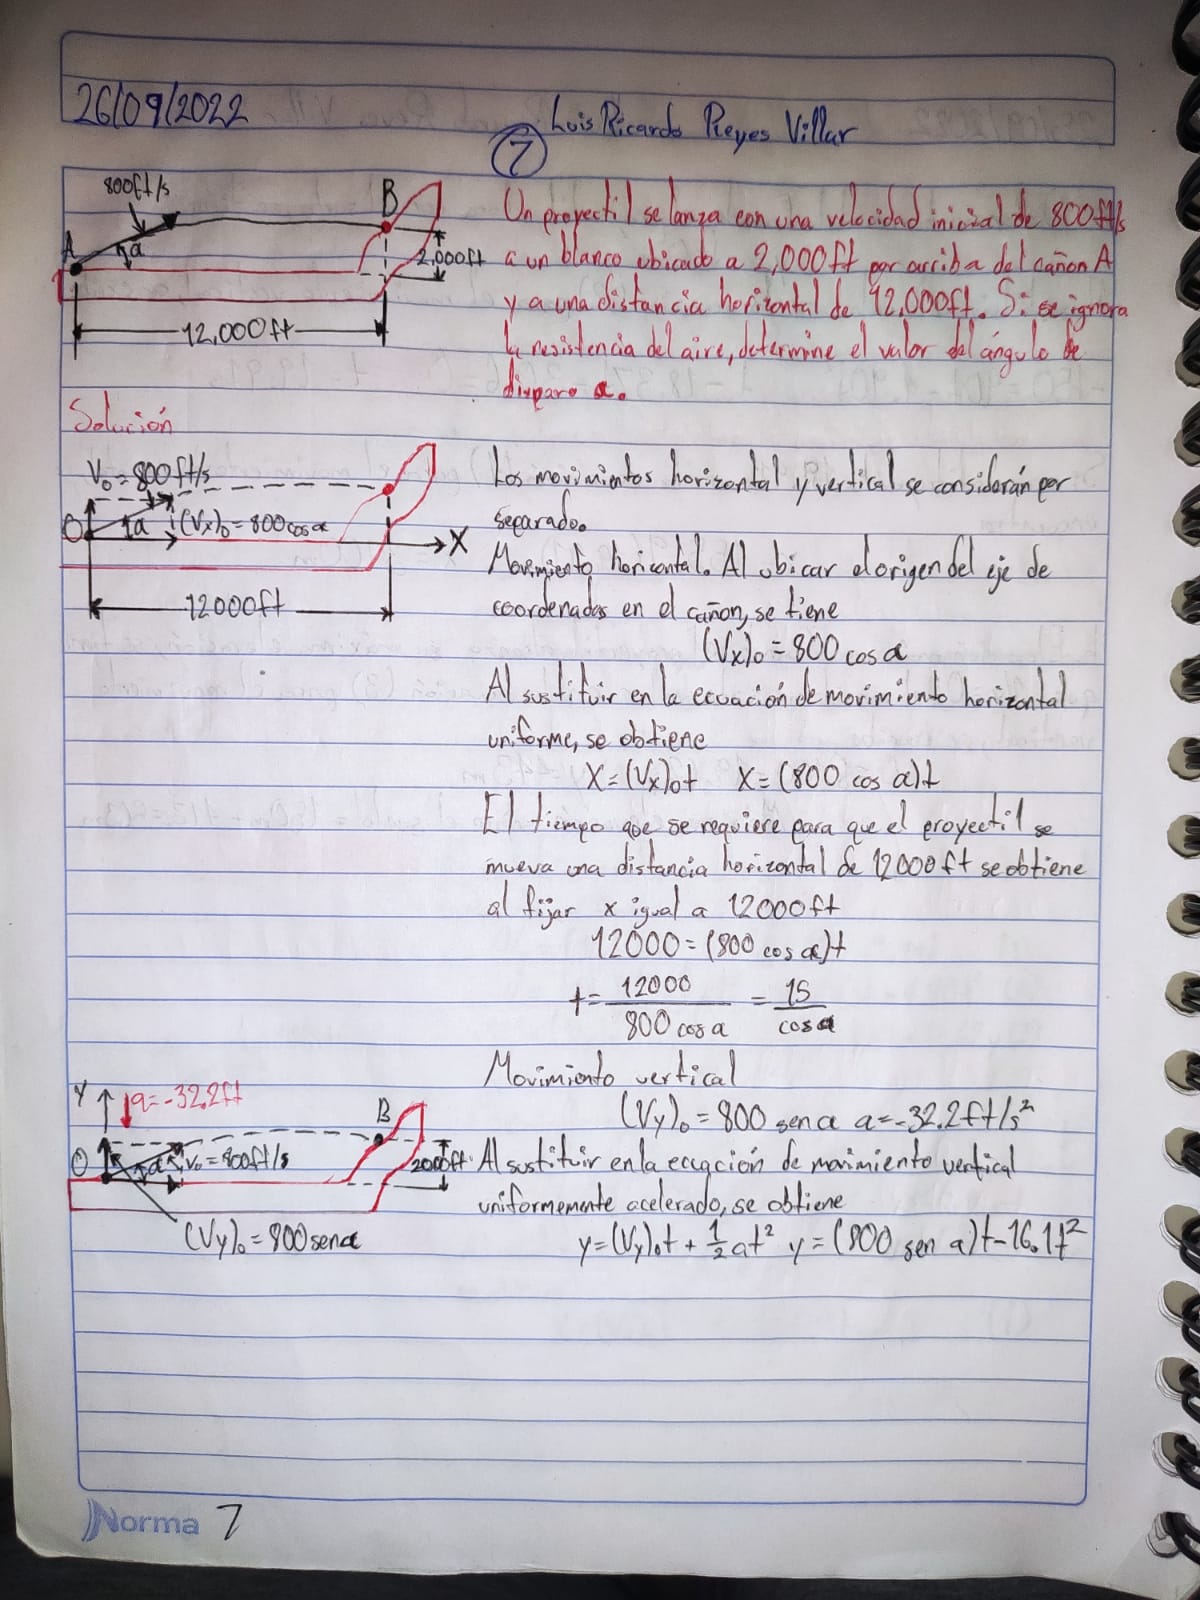 26/09/2022
Luis Ricardo Reyes Villar
7
800ft/s
A
a
B
2,000ft
12,000ft
Un proyectil se lanza con una velocidad inicial de 800ft/s
a un blanco ubicado a 2,000ft por arriba del cañon A
y a una distancia horizontal de 12,000ft. Si se ignora
la resistencia del aire, determine el valor del ángulo de
disparo a.
Solución
V₀=800ft/s
O
a
(Vx)₀=800cosa
X
12000ft
Los movimientos horizontal y vertical se considerán por
separado.
Movimiento horizontal. Al ubicar el origen del eje de
coordenadas en el cañon, se tiene
(Vx)₀=800 cos a
Al sustituir en la ecuación de movimiento horizontal
uniforme, se obtiene
X=(Vx)₀t X=(800 cos a)t
El tiempo que se requiere para que el proyectil se
mueva una distancia horizontal de 12000ft se obtiene
al fijar x igual a 12000ft
12000=(800 cos a)t
t=12000/800 cos a = 15/cos a
Movimiento vertical
(Vy)₀=800 sen a a=-32.2ft/s²
Al sustituir en la ecuación de movimiento vertical
uniformemente acelerado, se obtiene
y=(Vy)₀t + 1/2 at² y=(800 sen a)t-16.1t²
Y
a=-32.2ft
B
O
a
V₀=800ft/s
2000ft
(Vy)₀=800sena
Norma 7